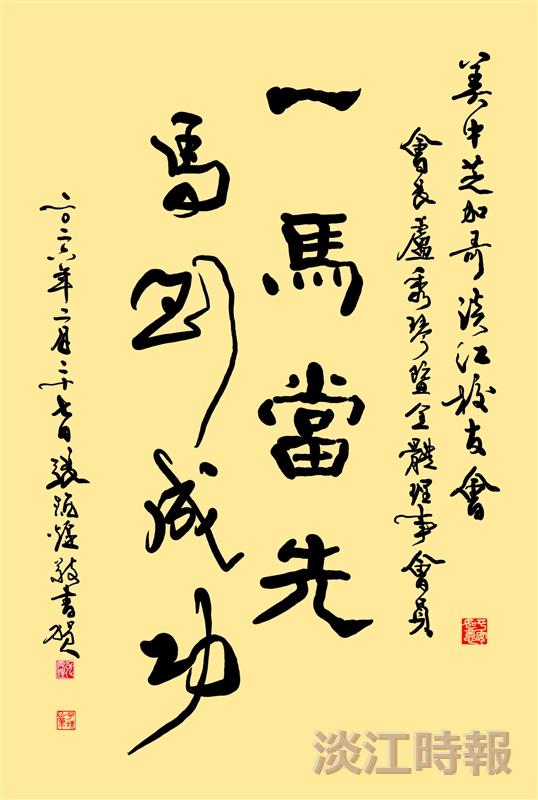 美中芝加哥淡江校友會
會長盧秀琴暨全體理事會員
一馬當先
馬到成功
二〇二六年二月二十七日張炳煌敬書賀
淡江時報